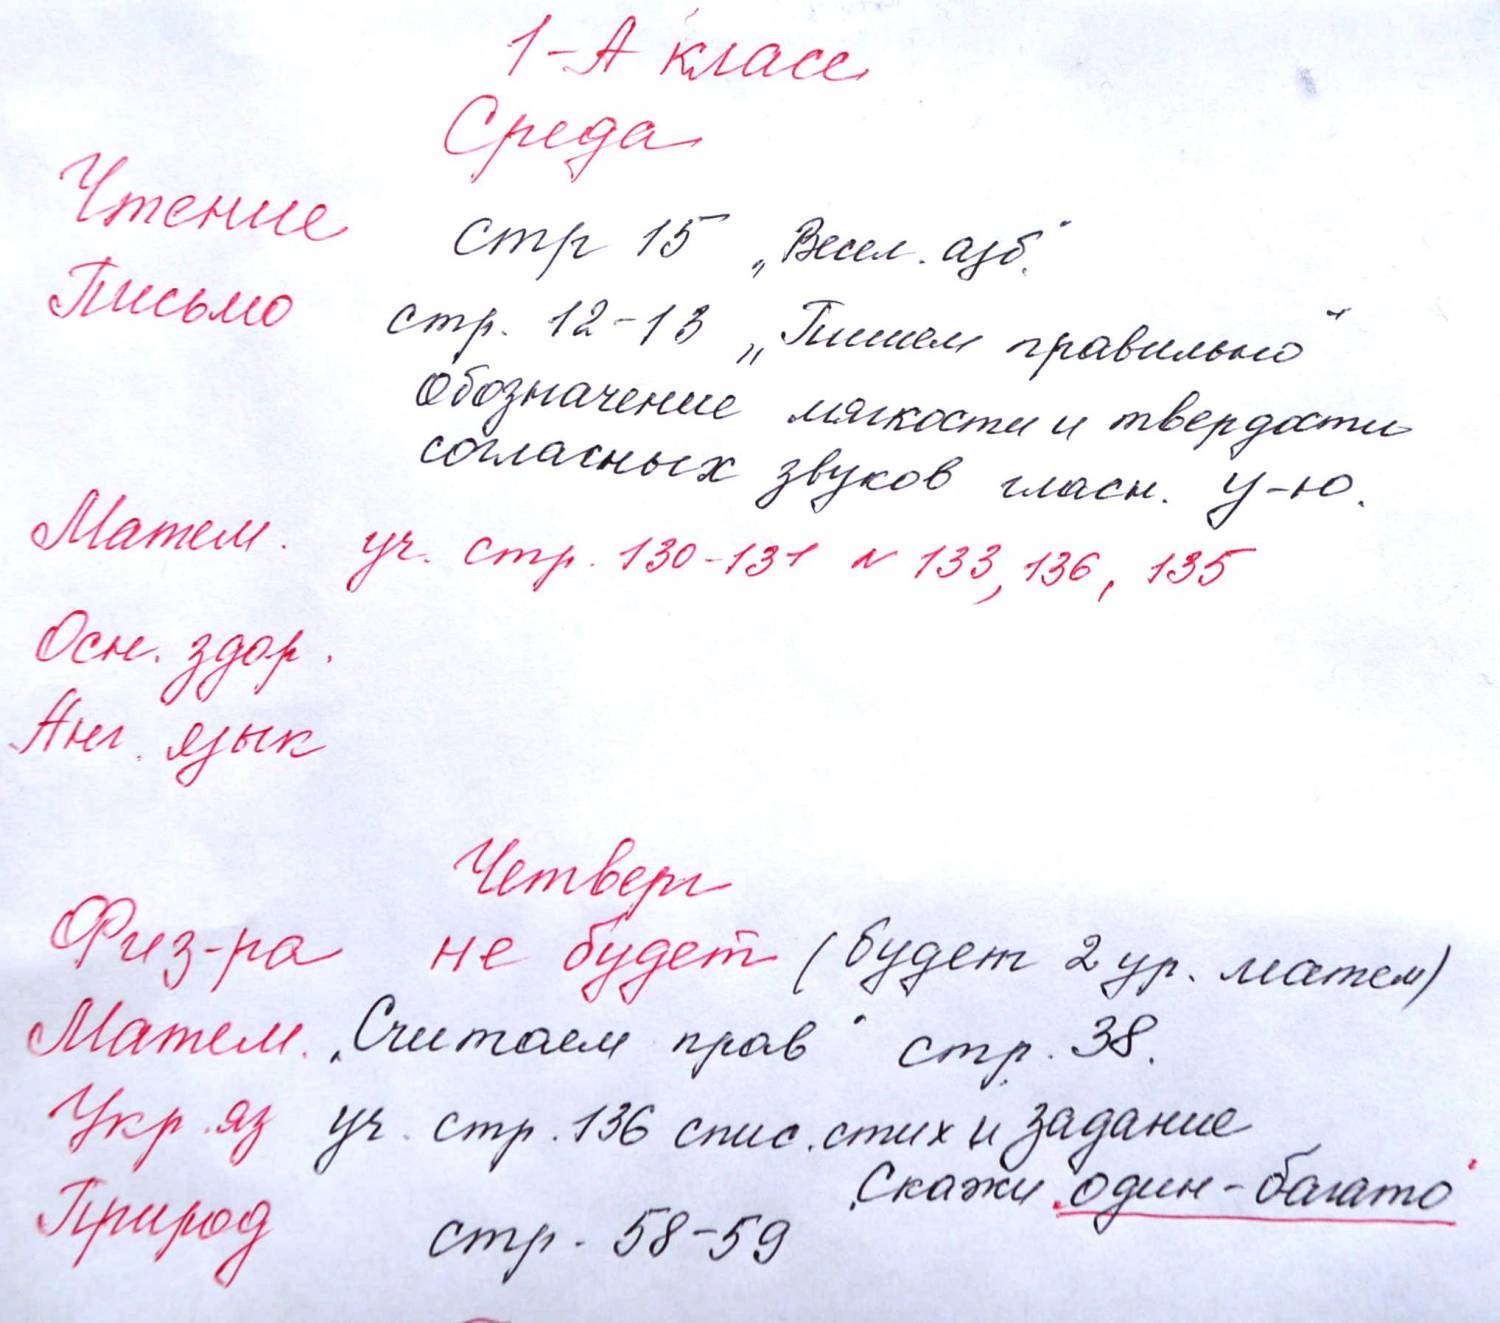 1-А класс
Среда
Чтение стр 15 „Весел. азб."
Письмо стр. 12-13 „Пишем правильно"
Обозначение мягкости и твердости
согласных звуков гласн. у-ю.
Матем. уч. стр. 130-131 № 133, 136, 135
Осн. здор.
Анг. язык
Четверг
Физ-ра не будет (будет 2 ур. матем)
Матем. „Считаем прав" стр. 38.
Укр. яз уч. стр. 136 спис. стих и задание
Скажи один-багато
Природ стр. 58-59